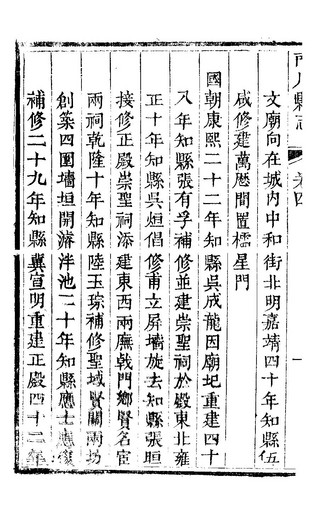 縣志 卷四 一
文廟向在城內中和街北明嘉靖四十年知縣伍
咸修建萬厯間置櫺星門
國朝康熙二十二年知縣吳成龍因廟圮重建四十
八年知縣張有孚補修並建崇聖祠於殿東北雍
正十年知縣吳烜倡修甫立屏墻旋去知縣張垣
接修正殿崇聖祠添建東西兩廡戟門鄉賢名宦
兩祠乾陸十年知縣陸玉琮補修聖域賢關兩坊
創築四圍墻垣開濬泮池二十年知縣應士復
補修二十九年知縣冀宣明重建正殿四十二年